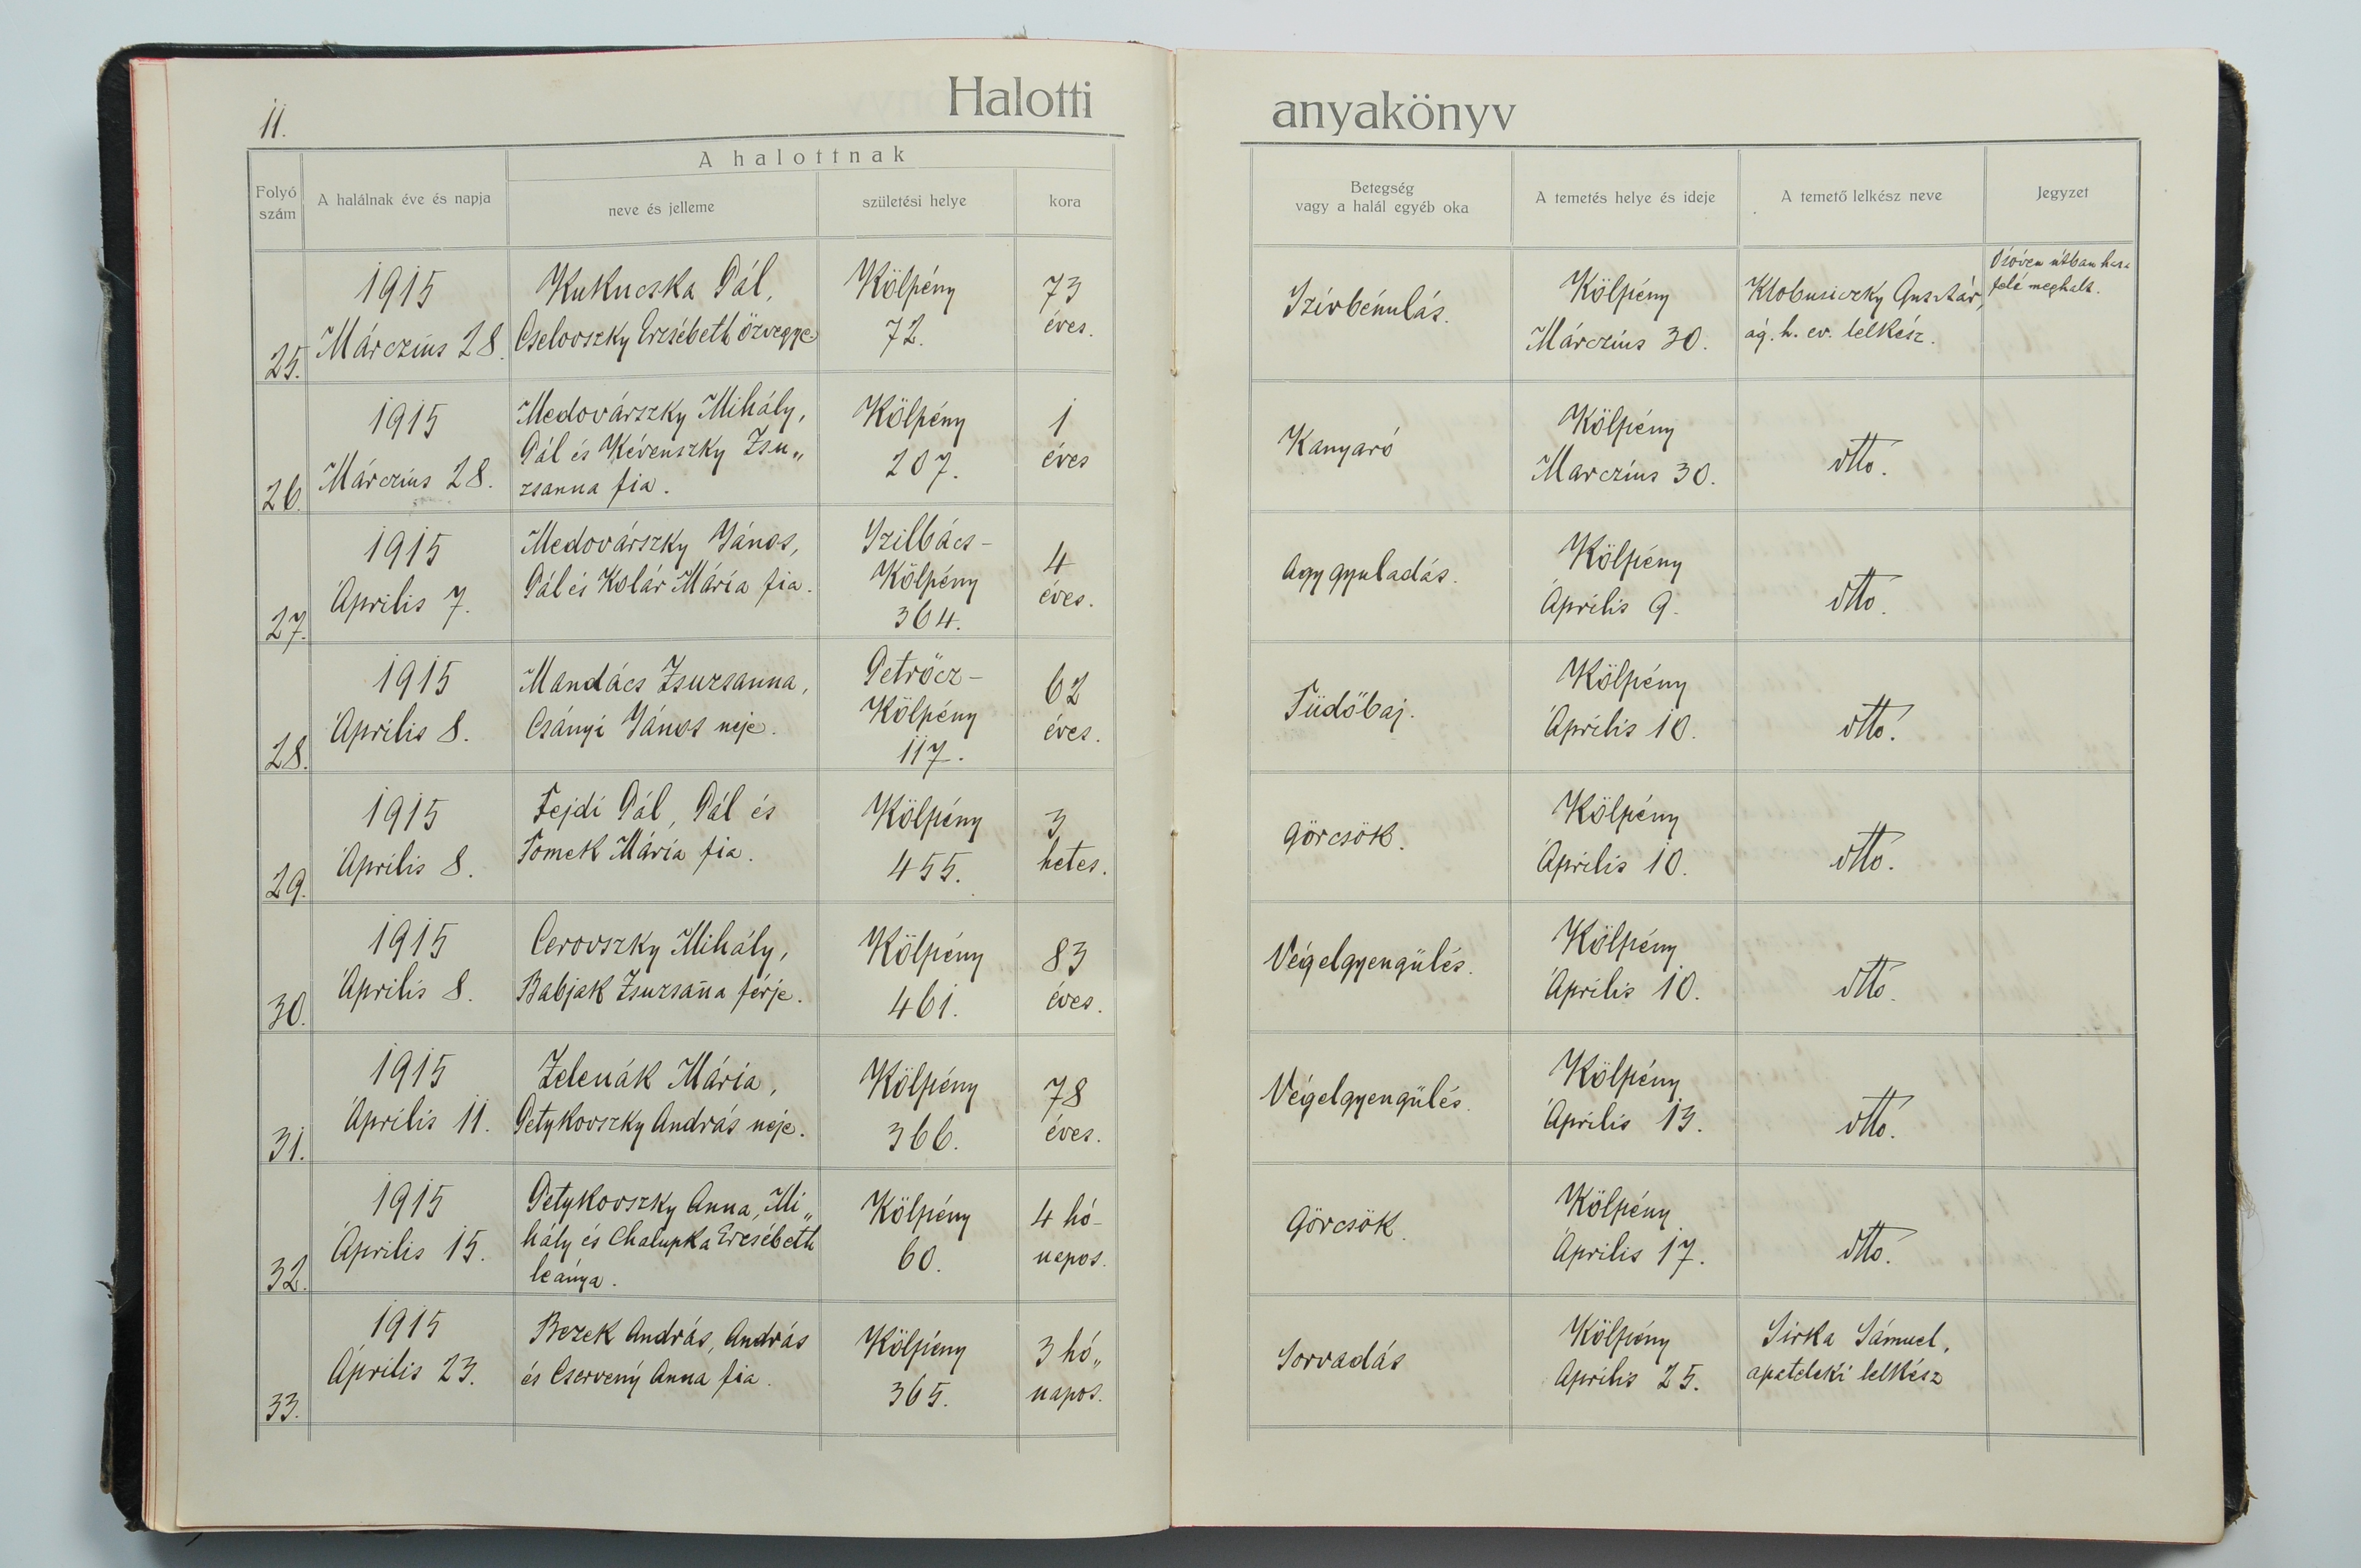 11.
Halotti anyakönyv
A halottnak
Folyó szám
A halálnak éve és napja
neve és jelleme
születési helye
kora
Betegség
vagy a halál egyéb oka
A temetés helye és ideje
A temető lelkész neve
Jegyzet
25.
1915
Márczius 28.
Kukucska Pál,
Cselovszky Erzsébeth özvegye
Kölpény
72.
73
éves.
Szívbénulás.
Kölpény
Márczius 30.
Klobusiczky Gusztáv,
ág. h. ev. lelkész.
útban haza
felé meghalt.
26.
1915
Márczius 28.
Medovárszky Mihály,
Pál és Kévenszky Zsu„
zsanna fia.
Kölpény
207.
1
éves
Kanyaró
Kölpény
Marczius 30.
dtto.
27.
1915
Április 7.
Medovárszky János,
Pál és Kolár Mária fia.
Szilbács-
Kölpény
364.
4
éves.
Agygyuladás.
Kölpény
Április 9.
dtto.
28.
1915
Április 8.
Mandács Zsuzsanna,
Csányi János neje.
Petrőcz-
Kölpény
117.
62
éves.
Tüdőbaj.
Kölpény
Április 10.
dtto.
29.
1915
Április 8.
Fejdi Pál, Pál és
Tomek Mária fia.
Kölpény
455.
3
hetes.
Görcsök.
Kölpény
Április 10.
dtto.
30.
1915
Április 8.
Cerovszky Mihály,
Babjak Zsuzsan̄a férje.
Kölpény
461.
83
éves.
Végelgyengülés.
Kölpény
Április 10.
dtto.
31.
1915
Április 11.
Zelenák Mária,
Petykovszky András neje.
Kölpény
366.
78
éves.
Végelgyengülés.
Kölpény
Április 13.
dtto.
32.
1915
Április 15.
Petykovszky Anna, Mi„
hály és Chalupka Erzsébeth
leánya.
Kölpény
60.
4 hó-
napos.
Görcsök.
Kölpény
Április 17.
dtto.
33.
1915
Április 23.
Bezek András, András
és Cservený Anna fia.
Kölpény
365.
3 hó„
napos.
Sorvadás
Kölpény
Április 25.
Sirka Sámuel,
apateleki lelkész